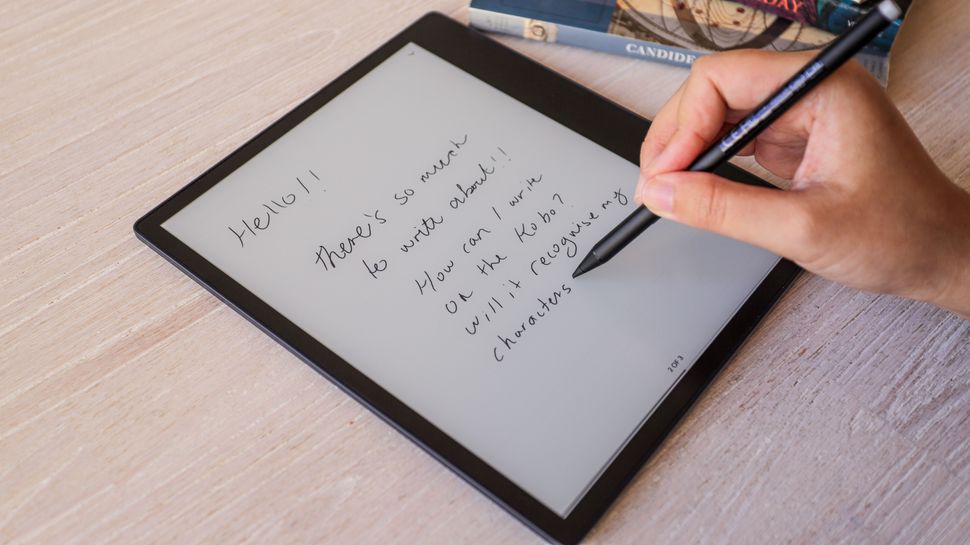 CANDIDE
Hello!!
There's so much
to write about!!
How can I write
on the Kobo?
will it recognise my
characters
2 OF 3